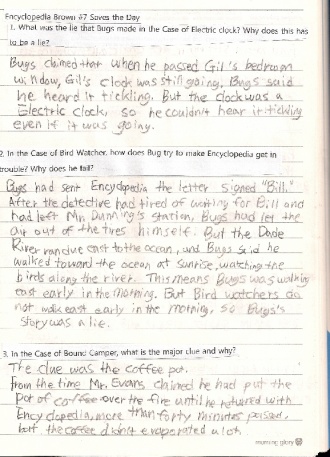 Encyclopedia Brown #7 Saves the Day
1. What was the lie that Bugs made in the Case of Electric clock? Why does this has
to be a lie?
Bugs claimed that when he passed Gil's bedroom
window, Gil's clock was still going. Bugs said
he heard it tickling. But the clock was a
Electric clock, so he couldn't hear it tickling
even if it was going.
2. In the Case of Bird Watcher, how does Bug try to make Encyclopedia get in
trouble? Why does he fail?
Bugs had sent Encyclopedia the letter signed "Bill."
After the detective had tired of waiting for Bill and
had left Mr. Dunning's station, Bugs had let the
air out of the tires himself. But the Dade
River ran due east to the ocean, and Bugs said he
walked toward the ocean at sunrise, watching the
birds along the river. This means Bugs was walking
east early in the morning. But Bird watchers do
not walk east early in the morning, so Bugs's
story was a lie.
3. In the Case of Bound Camper, what is the major clue and why?
The clue was the coffee pot.
from the time Mr. Evans claimed he had put the
pot of coffee over the fire until he returned with
Encyclopedia, more than forty minutes passed,
but the coffee didn't evaporated a lot.
morning glory